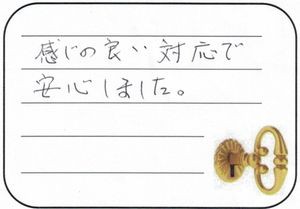 感じの良い対応で
安心しました。